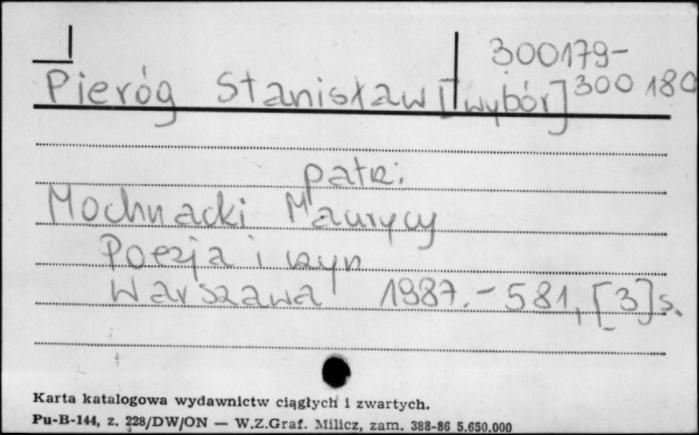 300179-
Pieróg Stanisław [wybór] 300 180
patrz:
Mochnacki Maurycy
Poezja i czyn
Warszawa 1987.- 581, [3] s.
Karta katalogowa wydawnictw ciągłych i zwartych.
Pu-B-144, z. 228/DW/ON — W.Z.Graf. Milicz, zam. 388-86 5.650.000